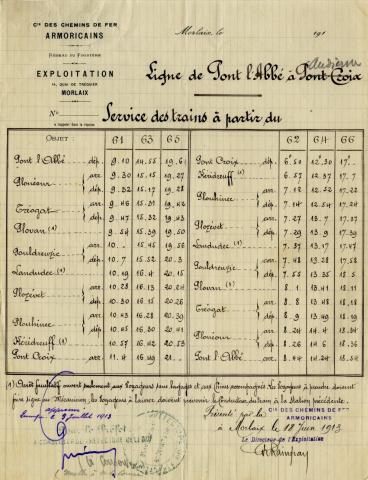 Cie DES CHEMINS DE FER
ARMORICAINS
RÉSEAU DU FINISTÈRE
EXPLOITATION
MORLAIX
Morlaix, le 191
Audierne
Ligne de Pont l'Abbé à Pont Croix
No
Service des trains à partir du
OBJET : 61 63 65
Pont l'Abbé dép. 9.10 14.55
Plonéour arr. 9.30 15.15 19.27
dép. 9.32 15.17 19.28
Tréogat arr. 9.46 15.31 19.42
dép. 9.47 15.32 19.43
Plovan (1) 9.54 15.39 19.50
Pouldreuzic arr. 10. 15.45 19.58
dép. 10.7 15.52 20.3
Landudec (1) 10.19 16.4 20.15
Plozévet arr. 10.28 16.13 20.24
dép. 10.30 16.15 20.26
Plouhinec arr. 10.43 16.28 20.39
dép. 10.45 16.30 20.41
Kéridreuff (1) 10.57 16.42 20.53
Pont Croix arr. 11.4 16.49 21.
62 64 66
Pont Croix dép. 6.50 12.30 17.
Kéridreuff (1) 6.57 12.37 17.7
Plouhinec arr. 7.12 12.52 17.22
dép. 7.14 12.54 17.24
Plozévet arr. 7.27 13.7 17.37
dép. 7.29 13.9 17.39
Landudec (1) 7.37 13.17 17.47
Pouldreuzic arr. 7.48 13.28 17.58
dép. 7.55 13.35 18.5
Plovan (1) 8.1 13.41 18.11
Tréogat arr. 8.8 13.48 18.18
dép. 8.9 13.49 18.19
Plonéour arr. 8.24 14.4 18.34
dép. 8.26 14.6 18.36
Pont l'Abbé arr. 8.44 14.24 18.54
(1) Arrêt facultatif ouvert seulement aux voyageurs sans bagages et aux chiens accompagnés. Les voyageurs à prendre doivent
faire signe au Mécanicien, les voyageurs à laisser doivent prévenir le Conducteur du train à la Station précédente.
juillet 1913
Présenté par la
Cie DES CHEMINS DE FER
ARMORICAINS
à Morlaix le 18 Juin 1913
Le Directeur de l'Exploitation